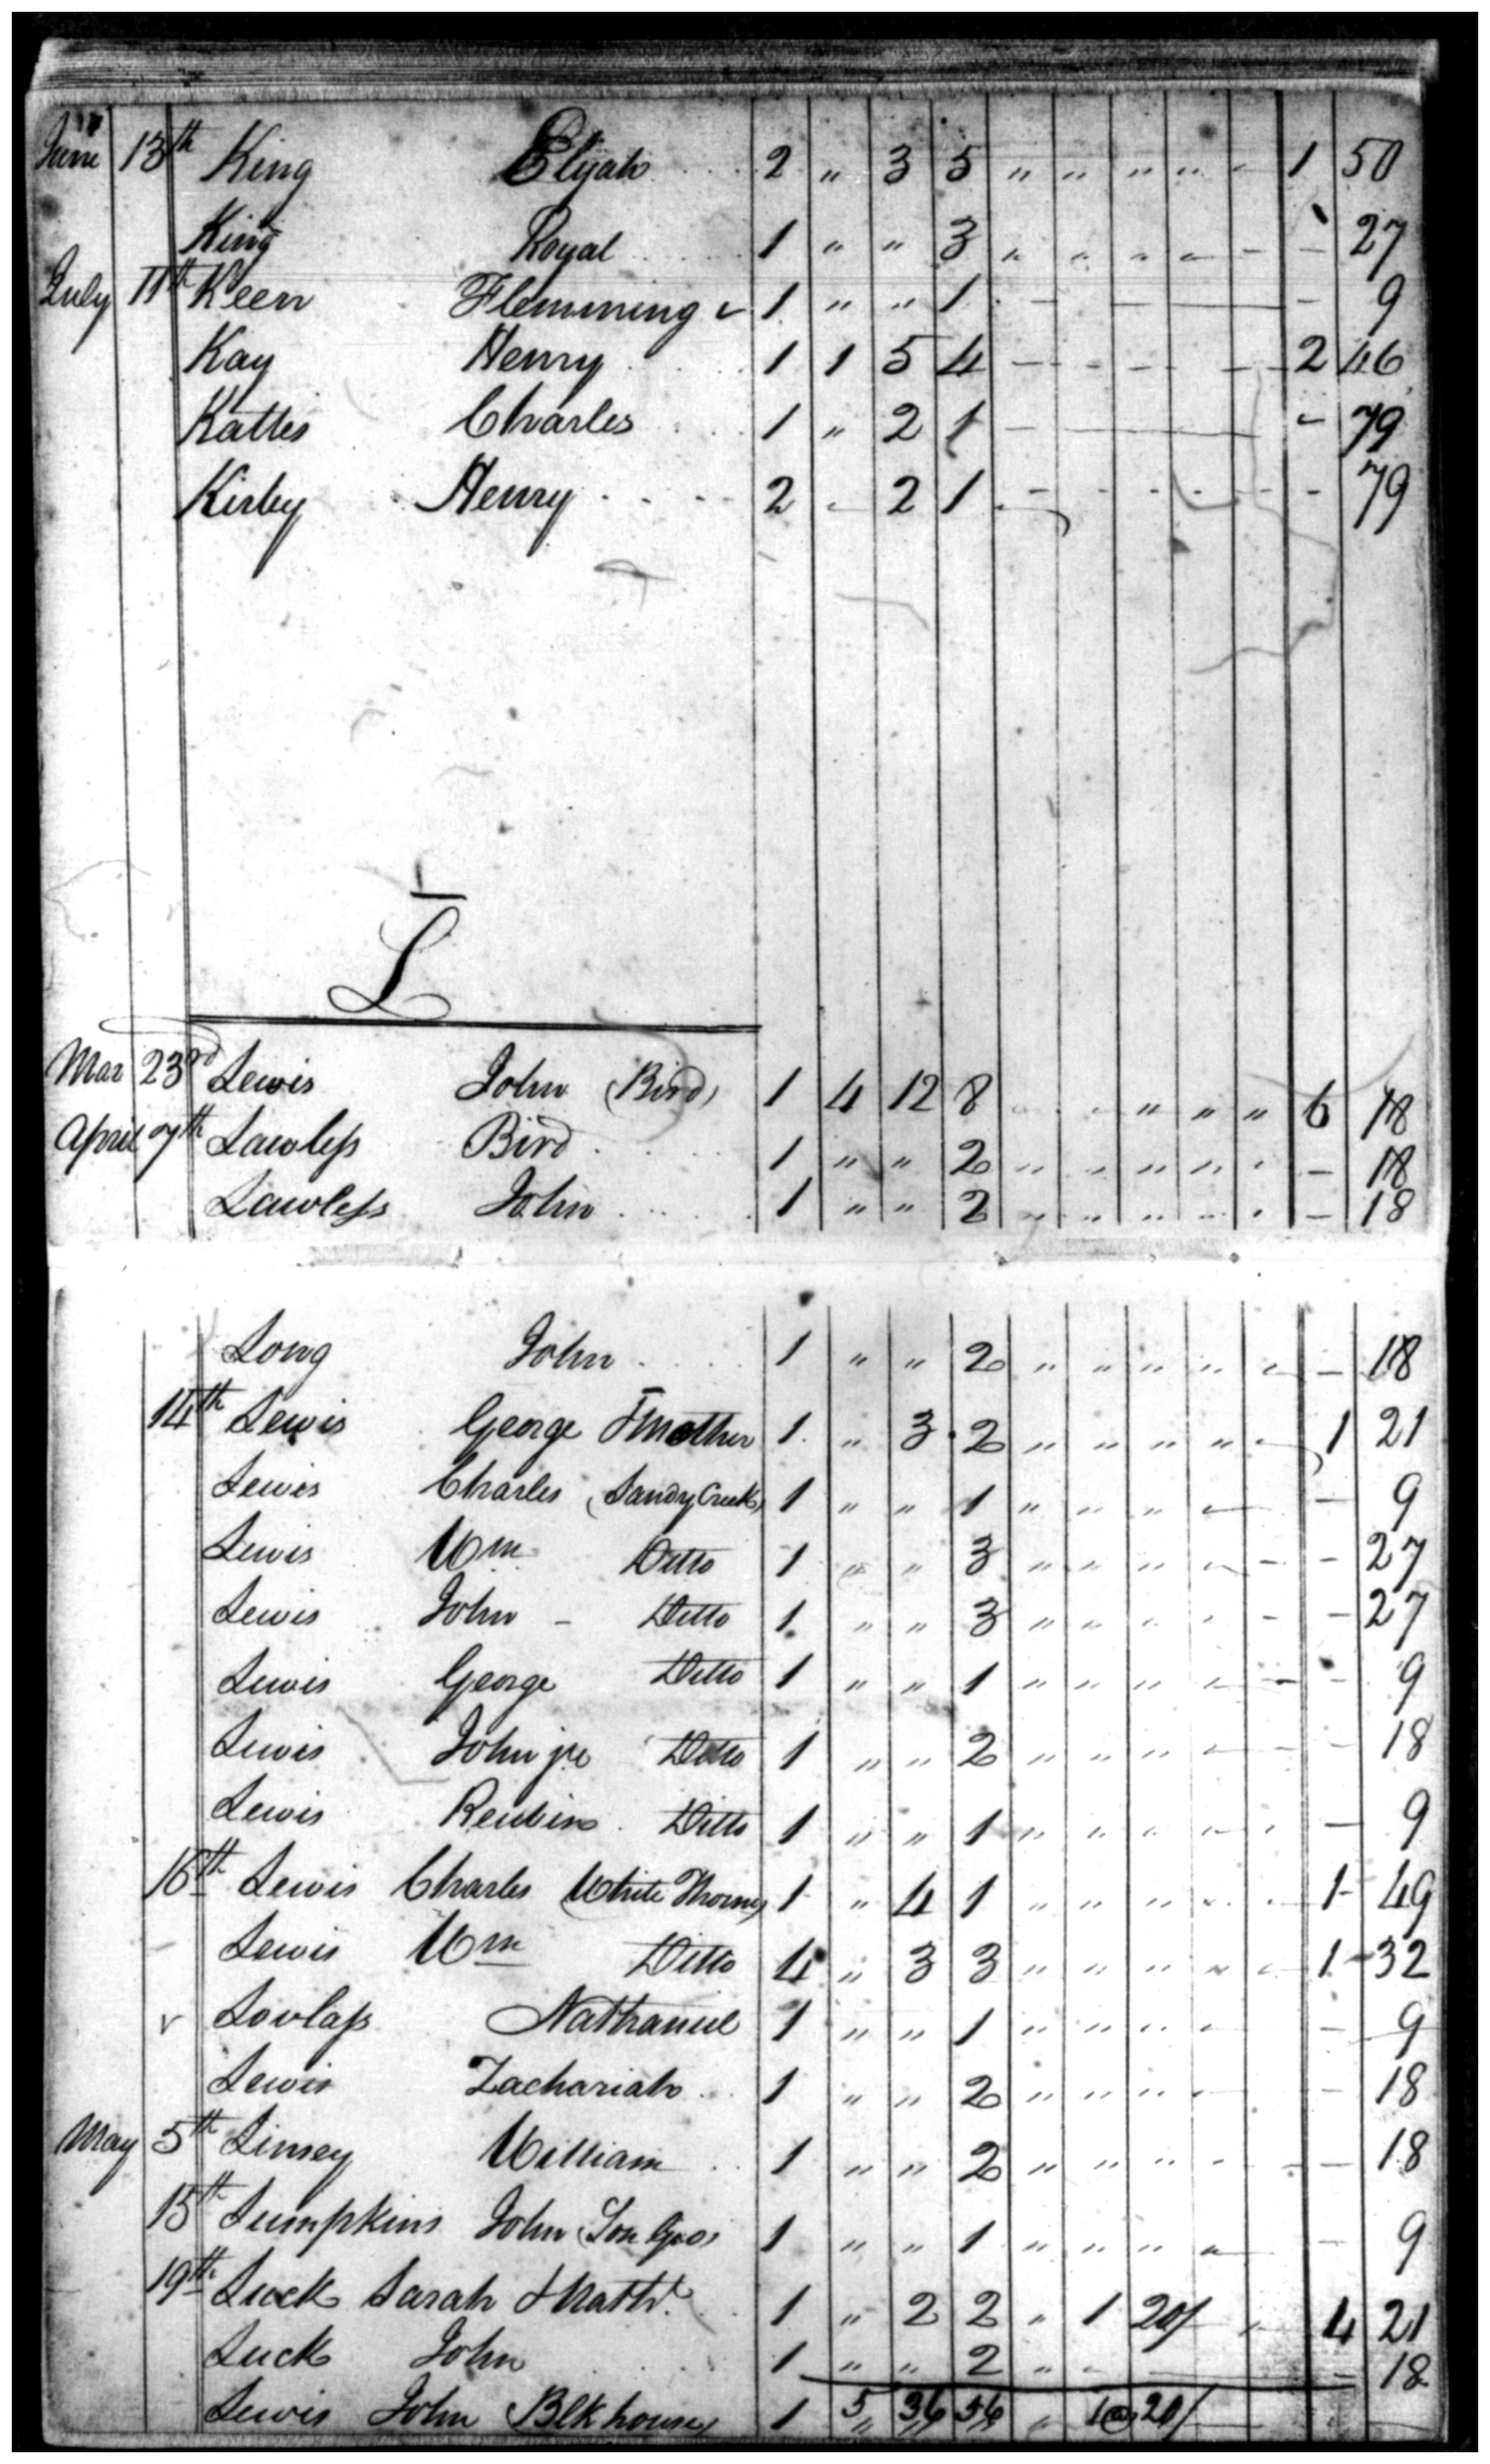 June 13th King Elijah 2 " 3 5 " " " " - 1 50
King Royal 1 " " 3 " " " " - - 27
July 11th Keen Flemming 1 " " 1 - - - - 9
Kay Henry 1 1 5 4 - - - - - 2 46
Kattes Charles 1 " 2 1 - - - 79
Kirby Henry 2 - 2 1 - - - - - - 79
L
Mar 23rd Lewis John (Bird) 1 4 12 8 " " " 6 18
April 7th Lawless Bird 1 " " 2 " " " " - 18
Lawless John 1 " " 2 " " " " - 18
Long John 1 " " 2 " " " " - - 18
14th Lewis George & Mother 1 " 3 2 " " " " - 1 21
Lewis Charles (Sandy Creek) 1 " " 1 " " " - - 9
Lewis Wm Ditto 1 " " 3 " " " " - - 27
Lewis John - Ditto 1 " " 3 " " " " - - 27
Lewis George Ditto 1 " " 1 " " " - - 9
Lewis John jr Ditto 1 " " 2 " " " - - - 18
Lewis Reubin Ditto 1 " " 1 " " " " - 9
16th Lewis Charles (White Thorn) 1 " 4 1 " " " " - 1 49
Lewis Wm Ditto 4 " 3 3 " " " " - 1 32
Lovlass Nathaniel 1 " " 1 " " " - - 9
Lewis Zachariah 1 " " 2 " " " - - 18
May 5th Linsey William 1 " " 2 " " " - - - 18
15th Lumpkins John (Son Geo) 1 " " 1 " " " " - 9
19th Luck Sarah & Nathl. 1 " 2 2 " 1 20/ " 4 21
Luck John 1 " " 2 " - - - 18
Lewis John Blk house) 1 5 36 56 " 1@ 20/